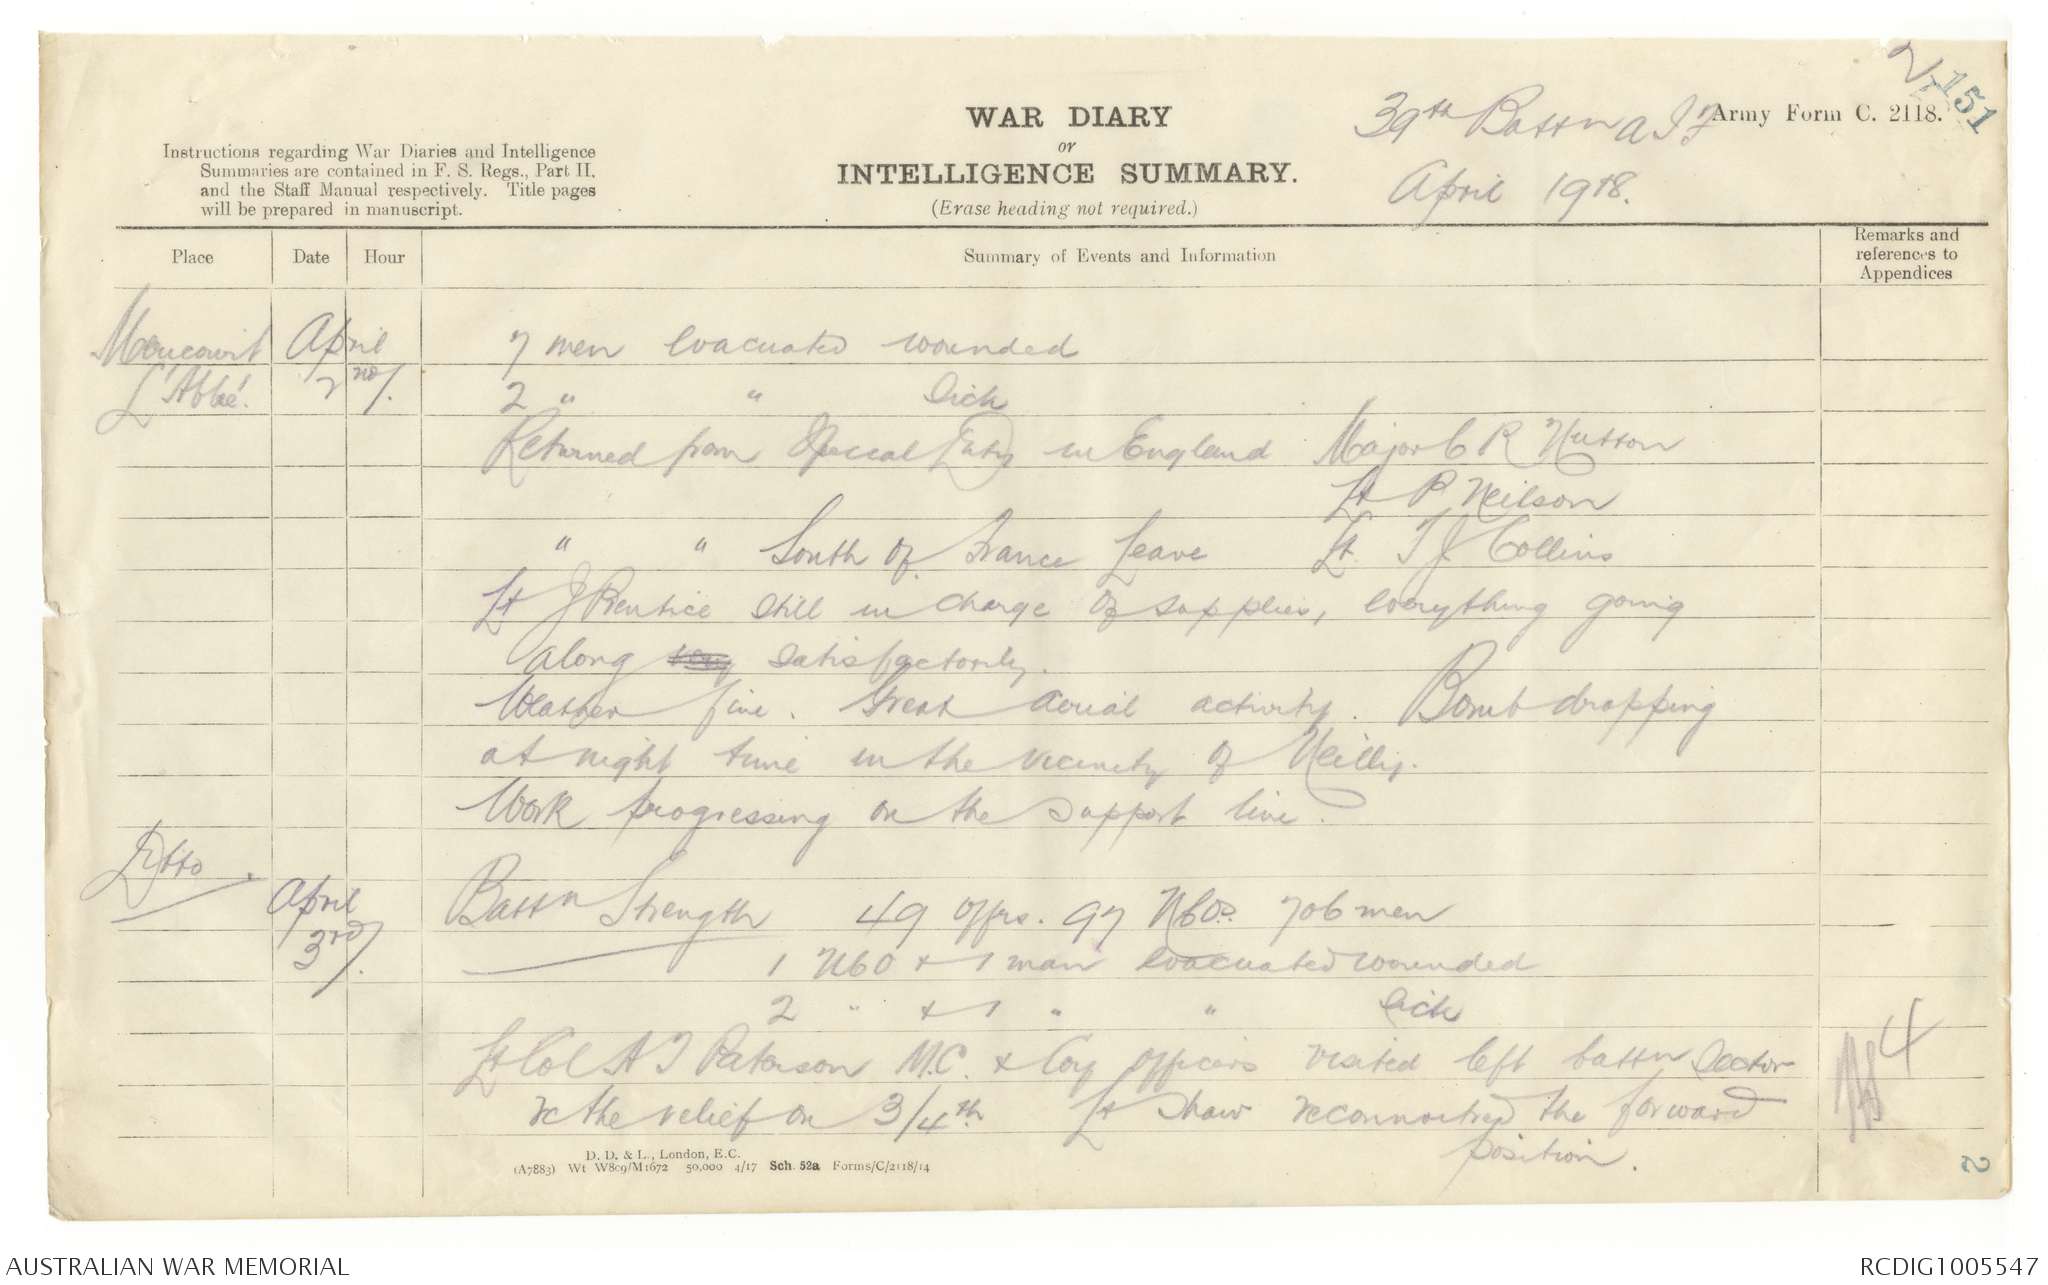 WAR DIARY
or
INTELLIGENCE SUMMARY.
(Erase heading not required.)
39th Battn A I F
April 1918.
Army Form C. 2118.
151
Instructions regarding War Diaries and Intelligence
Summaries are contained in F. S. Regs., Part II.
and the Staff Manual respectively. Title pages
will be prepared in manuscript.
Place Date Hour Summary of Events and Information Remarks and references to Appendices
L'Abbé. April 2nd/.
7 men evacuated wounded
2 " " Sick
Returned from Special Duty in England Major C R Hutton
Lt P Neilson
" " South of France Leave Lt. T J Collins
Lt J Prentice still in charge of supplies, everything going
along satisfactorily.
Weather fine. Great aerial activity. Bomb dropping
at night time in the vicinity of Heilly.
Work progressing on the support line.
Ditto. April 3rd/.
Battn Strength 49 Offrs. 97 NCOs. 706 men
1 NCO + 1 man evacuated wounded
2 " + 1 " " Sick
Lt Col A T Paterson M.C. + Coy Officers visited left battn Sector
re the relief on 3/4th Lt Shaw reconnoitred the forward
position.
4
2
D. D. & L., London, E.C.
(A7883) Wt W809/M1672 50,000 4/17 Sch. 52a Forms/C/2118/14
AUSTRALIAN WAR MEMORIAL
RCDIG1005547